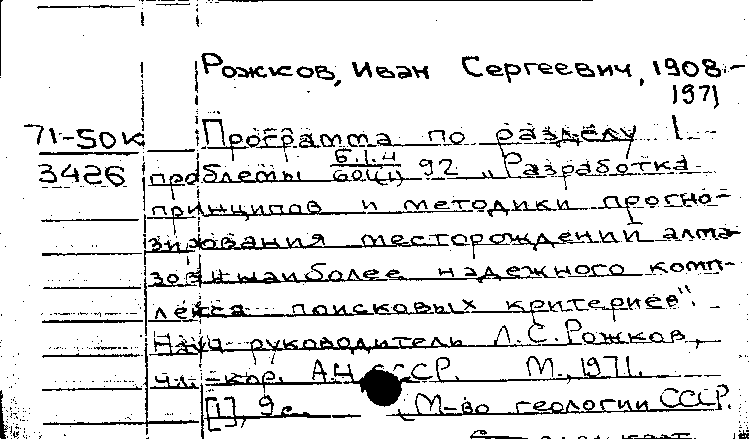 Рожков, Иван Сергеевич, 1908-
1971
71-50к Программа по разделу 1
3426 проблемы 92 „Разработка
принципов и методики прогно-
зирования месторождений алма-
зов и наиболее надежного комп-
лекса поисковых критериев".
Науч. руководитель Л.С. Рожков,
чл.-кор. АН СССР. М., 1971.
[1], 9 с. (М-во геологии СССР.